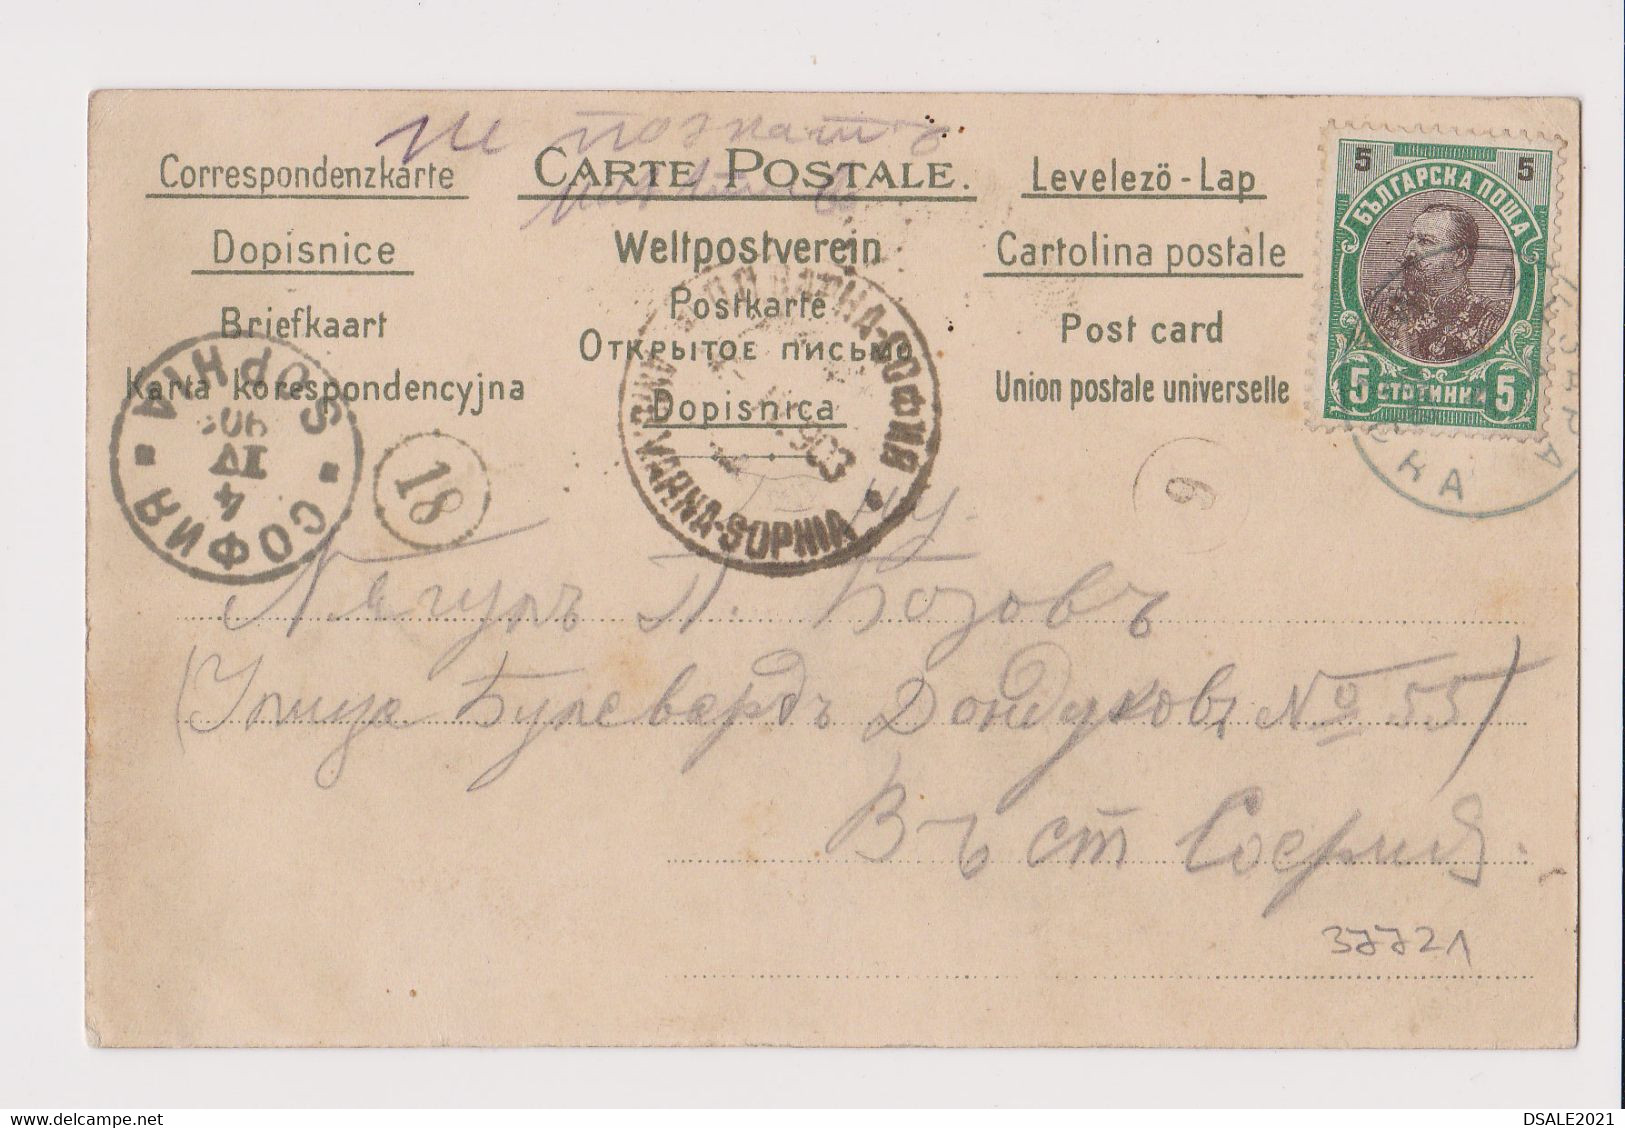 не познатъ
Correspondenzkarte
CARTE POSTALE.
Levelező - Lap
Dopisnice
Weltpostverein
Cartolina postale
Briefkaart
Postkarte
Post card
ОТКРЫТОЕ ПИСЬМО
Karta korespondencyjna
Dopisnica
Union postale universelle
5 5
БЪЛГАРСКА ПОЩА
5 СТОТИНКИ 5
SOPHIA
4 IV 903
СОФИЯ
18
ВАРНА-СОФИЯ
903
VARNA-SOPHIA
9
П. Бозовъ
(Улица Булевардъ Дондуковъ № 55)
Въ ст София.
37721
DSALE2021